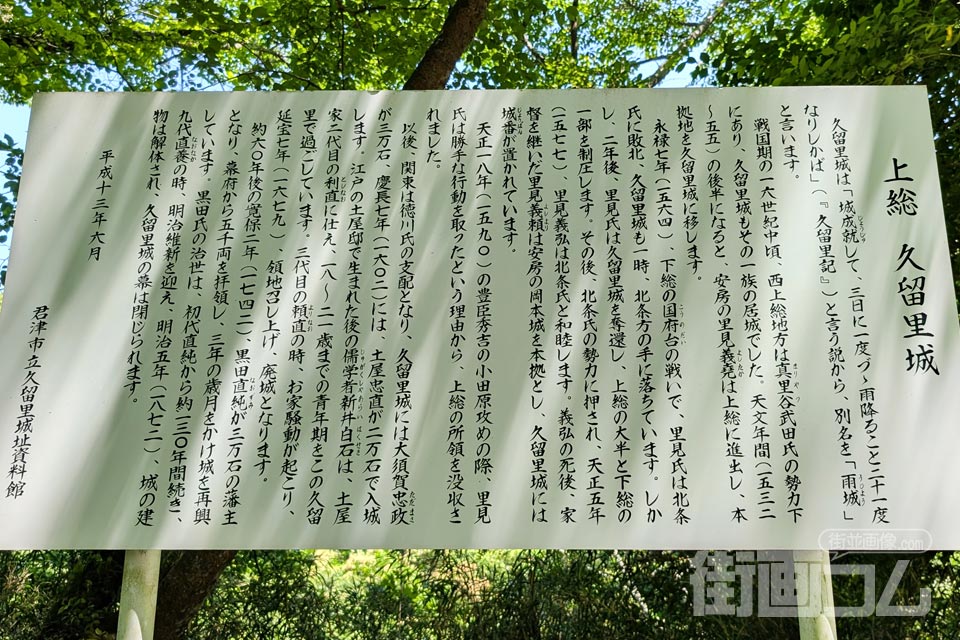 上総 久留里城
久留里城は、「城成就して、三日に一度づゝ雨降ること二十一度
なりしかば」(『久留里記』)と言う説から、別名を「雨城」
と言います。
戦国期の一六世紀中頃、西上総地方は真里谷武田氏の勢力下
にあり、久留里城もその一族の居城でした。天文年間(一五三二
～五五)の後半になると、安房の里見義堯は上総に進出し、本
拠地を久留里城に移します。
永禄七年(一五六四)、下総の国府台の戦いで、里見氏は北条
氏に敗北、久留里城も一時、北条方の手に落ちています。しか
し、二年後、里見氏は久留里城を奪還し、上総の大半と下総の
一部を制圧します。その後、北条氏の勢力に押され、天正五年
(一五七七)、里見義弘は北条氏と和睦します。義弘の死後、家
督を継いだ里見義頼は安房の岡本城を本拠とし、久留里城には
城番が置かれています。
天正一八年(一五九〇)の豊臣秀吉の小田原攻めの際、里見
氏は勝手な行動を取ったという理由から、上総の所領を没収さ
れました。
以後、関東は徳川氏の支配となり、久留里城には大須賀忠政
が三万石、慶長七年(一六〇二)には、土屋忠直が二万石で入城
します。江戸の土屋邸で生まれた後の儒学者新井白石は、土屋
家二代目の利直に仕え、一八～二一歳までの青年期をこの久留
里で過ごしています。三代目の頼直の時、お家騒動が起こり、
延宝七年(一六七九)、領地召し上げ、廃城となります。
約六〇年後の寛保二年(一七四二)、黒田直純が三万石の藩主
となり、幕府から五千両を拝領し、三年の歳月をかけ城を再興
しています。黒田氏の治世は、初代直純から約一三〇年間続き、
九代直養の時、明治維新を迎え、明治五年(一八七二)、城の建
物は解体され、久留里城の幕は閉じられます。
平成十三年六月
君津市立久留里城址資料館
街並画像.com
街画コム